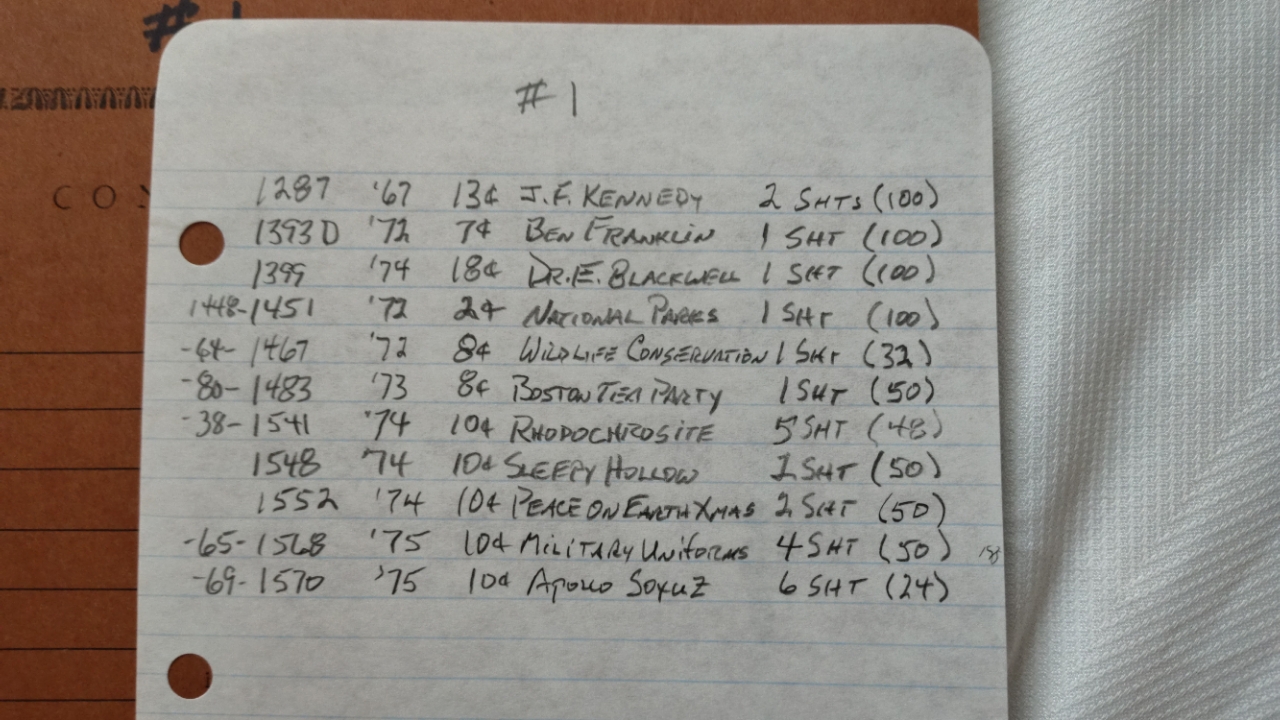 # 1
COX
# 1
1287 '67 13¢ J.F. KENNEDY 2 SHTS (100)
1393D '72 7¢ BEN FRANKLIN 1 SHT (100)
1399 '74 18¢ DR. E. BLACKWELL 1 SHT (100)
1448-1451 '72 2¢ NATIONAL PARKS 1 SHT (100)
-64-1467 '72 8¢ WILDLIFE CONSERVATION 1 SHT (32)
-80-1483 '73 8¢ BOSTON TEA PARTY 1 SHT (50)
-38-1541 '74 10¢ RHODOCHROSITE 5 SHT (48)
1548 '74 10¢ SLEEPY HOLLOW 1 SHT (50)
1552 '74 10¢ PEACE ON EARTH XMAS 2 SHT (50)
-65-1568 '75 10¢ MILITARY UNIFORMS 4 SHT (50)
-69-1570 '75 10¢ APOLLO SOYUZ 6 SHT (24)